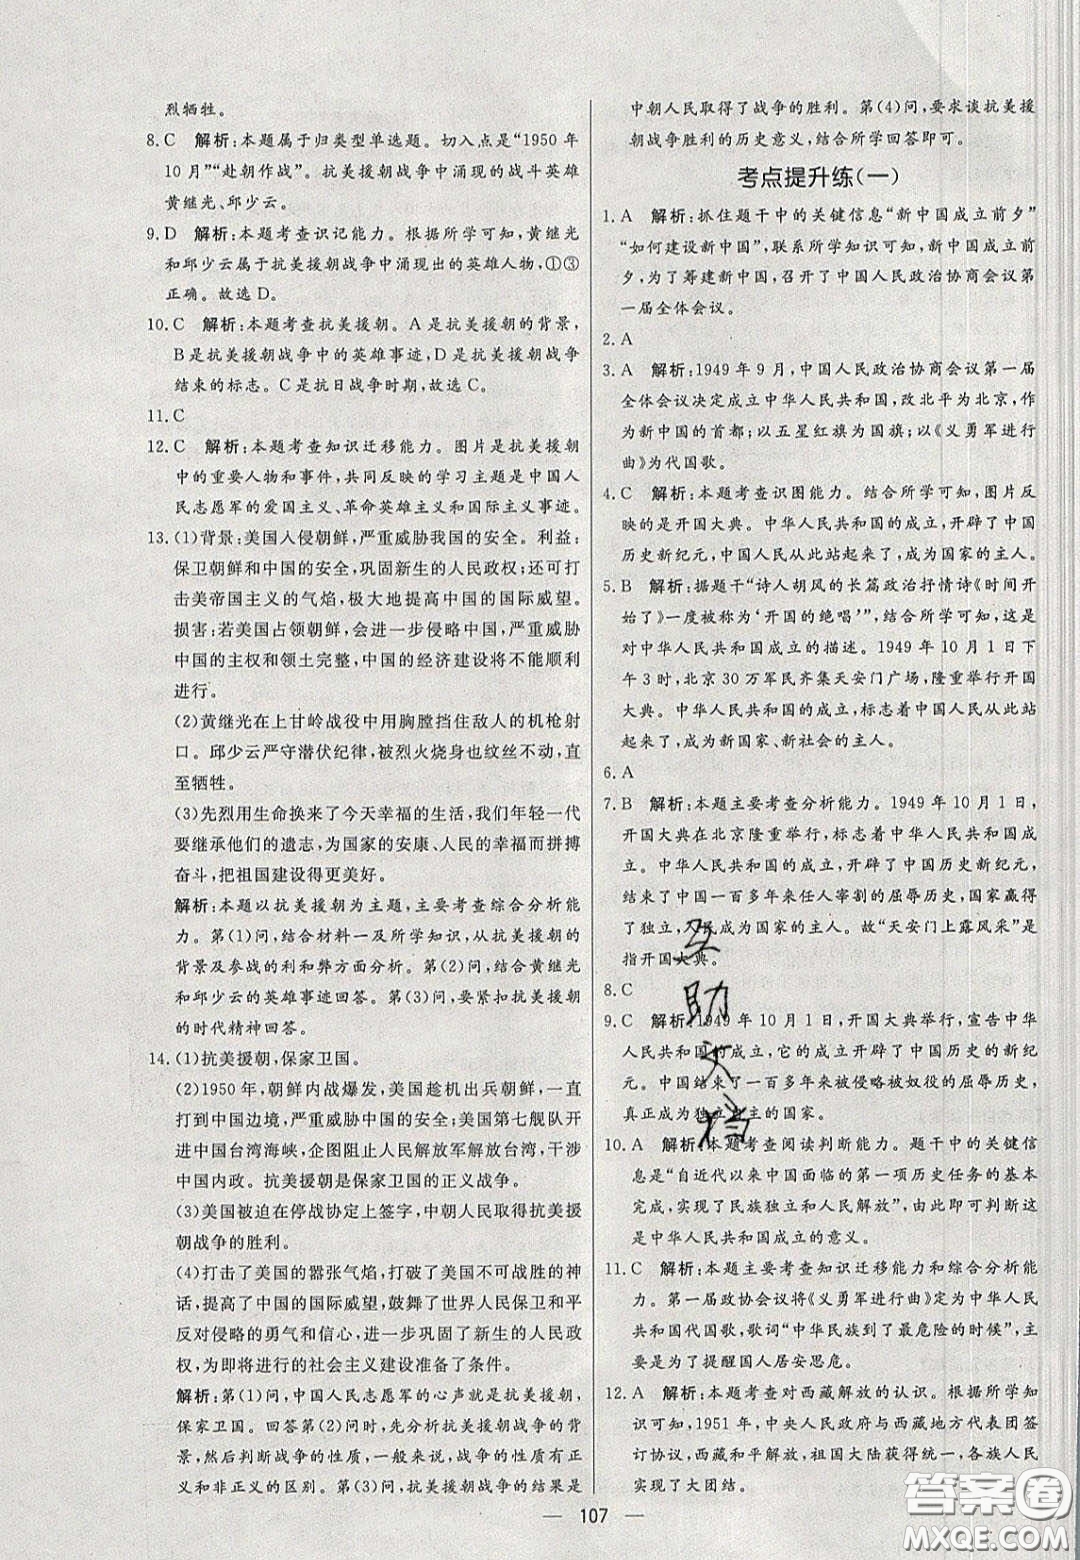 烈牺牲。
8. C 解析:本题属于归类型单选题。切入点是“1950 年
10月”“赴朝作战”。抗美援朝战争中涌现的战斗英雄
黄继光、邱少云。
9. D 解析:本题考查识记能力。根据所学可知,黄继光
和邱少云属于抗美援朝战争中涌现出的英雄人物,①③
正确。故选 D。
10. C 解析:本题考查抗美援朝。A 是抗美援朝的背景,
B是抗美援朝战争中的英雄事迹,D是抗美援朝战争
结束的标志。C是抗日战争时期,故选 C。
11. C
12. C 解析:本题考查知识迁移能力。图片是抗美援朝
中的重要人物和事件,共同反映的学习主题是中国人
民志愿军的爱国主义、革命英雄主义和国际主义事迹。
13. (1)背景:美国入侵朝鲜,严重威胁我国的安全。利益:
保卫朝鲜和中国的安全,巩固新生的人民政权;还可打
击美帝国主义的气焰,极大地提高中国的国际威望。
损害:若美国占领朝鲜,会进一步侵略中国,严重威胁
中国的主权和领土完整,中国的经济建设将不能顺利
进行。
(2)黄继光在上甘岭战役中用胸膛挡住敌人的机枪射
口。邱少云严守潜伏纪律,被烈火烧身也纹丝不动,直
至牺牲。
(3)先烈用生命换来了今天幸福的生活,我们年轻一代
要继承他们的遗志,为国家的安康、人民的幸福而拼搏
奋斗,把祖国建设得更美好。
解析:本题以抗美援朝为主题,主要考查综合分析能
力。第(1)问,结合材料一及所学知识,从抗美援朝的
背景及参战的利和弊方面分析。第(2)问,结合黄继光
和邱少云的英雄事迹回答。第(3)问,要紧扣抗美援朝
的时代精神回答。
14. (1)抗美援朝,保家卫国。
(2)1950 年,朝鲜内战爆发,美国趁机出兵朝鲜,一直
打到中国边境,严重威胁中国的安全;美国第七舰队开
进中国台湾海峡,企图阻止人民解放军解放台湾,干涉
中国内政。抗美援朝是保家卫国的正义战争。
(3)美国被迫在停战协定上签字,中朝人民取得抗美援
朝战争的胜利。
(4)打击了美国的嚣张气焰,打破了美国不可战胜的神
话,提高了中国的国际威望,鼓舞了世界人民保卫和平
反对侵略的勇气和信心,进一步巩固了新生的人民政
权,为即将进行的社会主义建设准备了条件。
解析:第(1)问,中国人民志愿军的心声就是抗美援朝,
保家卫国。回答第(2)问时,先分析抗美援朝战争的背
景,然后判断战争的性质,一般来说,战争的性质有正
义和非正义的区别。第(3)问,抗美援朝战争的结果是
中朝人民取得了战争的胜利。第(4)问,要求谈抗美援
朝战争胜利的历史意义,结合所学回答即可。
考点提升练(一)
1. A 解析:抓住题干中的关键信息“新中国成立前夕”
“如何建设新中国”,联系所学知识可知,新中国成立前
夕,为了筹建新中国,召开了中国人民政治协商会议第
一届全体会议。
2. A
3. A 解析:1949 年 9 月,中国人民政治协商会议第一届
全体会议决定成立中华人民共和国,改北平为北京,作
为新中国的首都;以五星红旗为国旗;以《义勇军进行
曲》为代国歌。
4. C 解析:本题考查识图能力。结合所学可知,图片反
映的是开国大典。中华人民共和国的成立,开辟了中国
历史新纪元,中国人民从此站起来了,成为国家的主人。
5. B 解析:据题干“诗人胡风的长篇政治抒情诗《时间开
始了》一度被称为‘开国的绝唱’”,结合所学可知,这是
对中华人民共和国成立的描述。1949 年 10 月 1 日下
午 3 时,北京 30 万军民齐集天安门广场,隆重举行开国
大典。中华人民共和国的成立,标志着中国人民从此站
起来了,成为新国家、新社会的主人。
6. A
7. B 解析:本题主要考查分析能力。1949 年 10 月 1 日,
开国大典在北京隆重举行,标志着中华人民共和国的
成立。中华人民共和国的成立,开辟了中国历史新纪元,
结束了中国一百多年来任人宰割的屈辱历史,国家赢得
了独立,人民成为国家的主人。故“天安门上露风采”是
指开国大典。
8. C
9. C 解析:1949 年 10 月 1 日,开国大典举行,宣告中华人
民共和国的成立,它的成立开辟了中国历史的新纪
元。中国结束了一百多年来被侵略被奴役的屈辱历史,
真正成为独立自主的国家。
10. A 解析:本题考查阅读判断能力。题干中的关键信
息是“自近代以来中国面临的第一项历史任务的基本
完成,实现了民族独立和人民解放”,由此可判断这是
中华人民共和国成立的意义。
11. C 解析:本题主要考查知识迁移能力和综合分析能
力。第一届政协会议将《义勇军进行曲》定为中华人民
共和国代国歌,歌词“中华民族到了最危险的时候”,主
要是为了提醒国人居安思危。
12. A 解析:本题考查对西藏解放的认识。根据所学知
识可知,1951 年,中央人民政府与西藏地方代表团签
订协议,西藏和平解放,祖国大陆获得统一,各族人民
实现了大团结。
互
助
文
档
— 107 —
答案圈
MXQE.COM